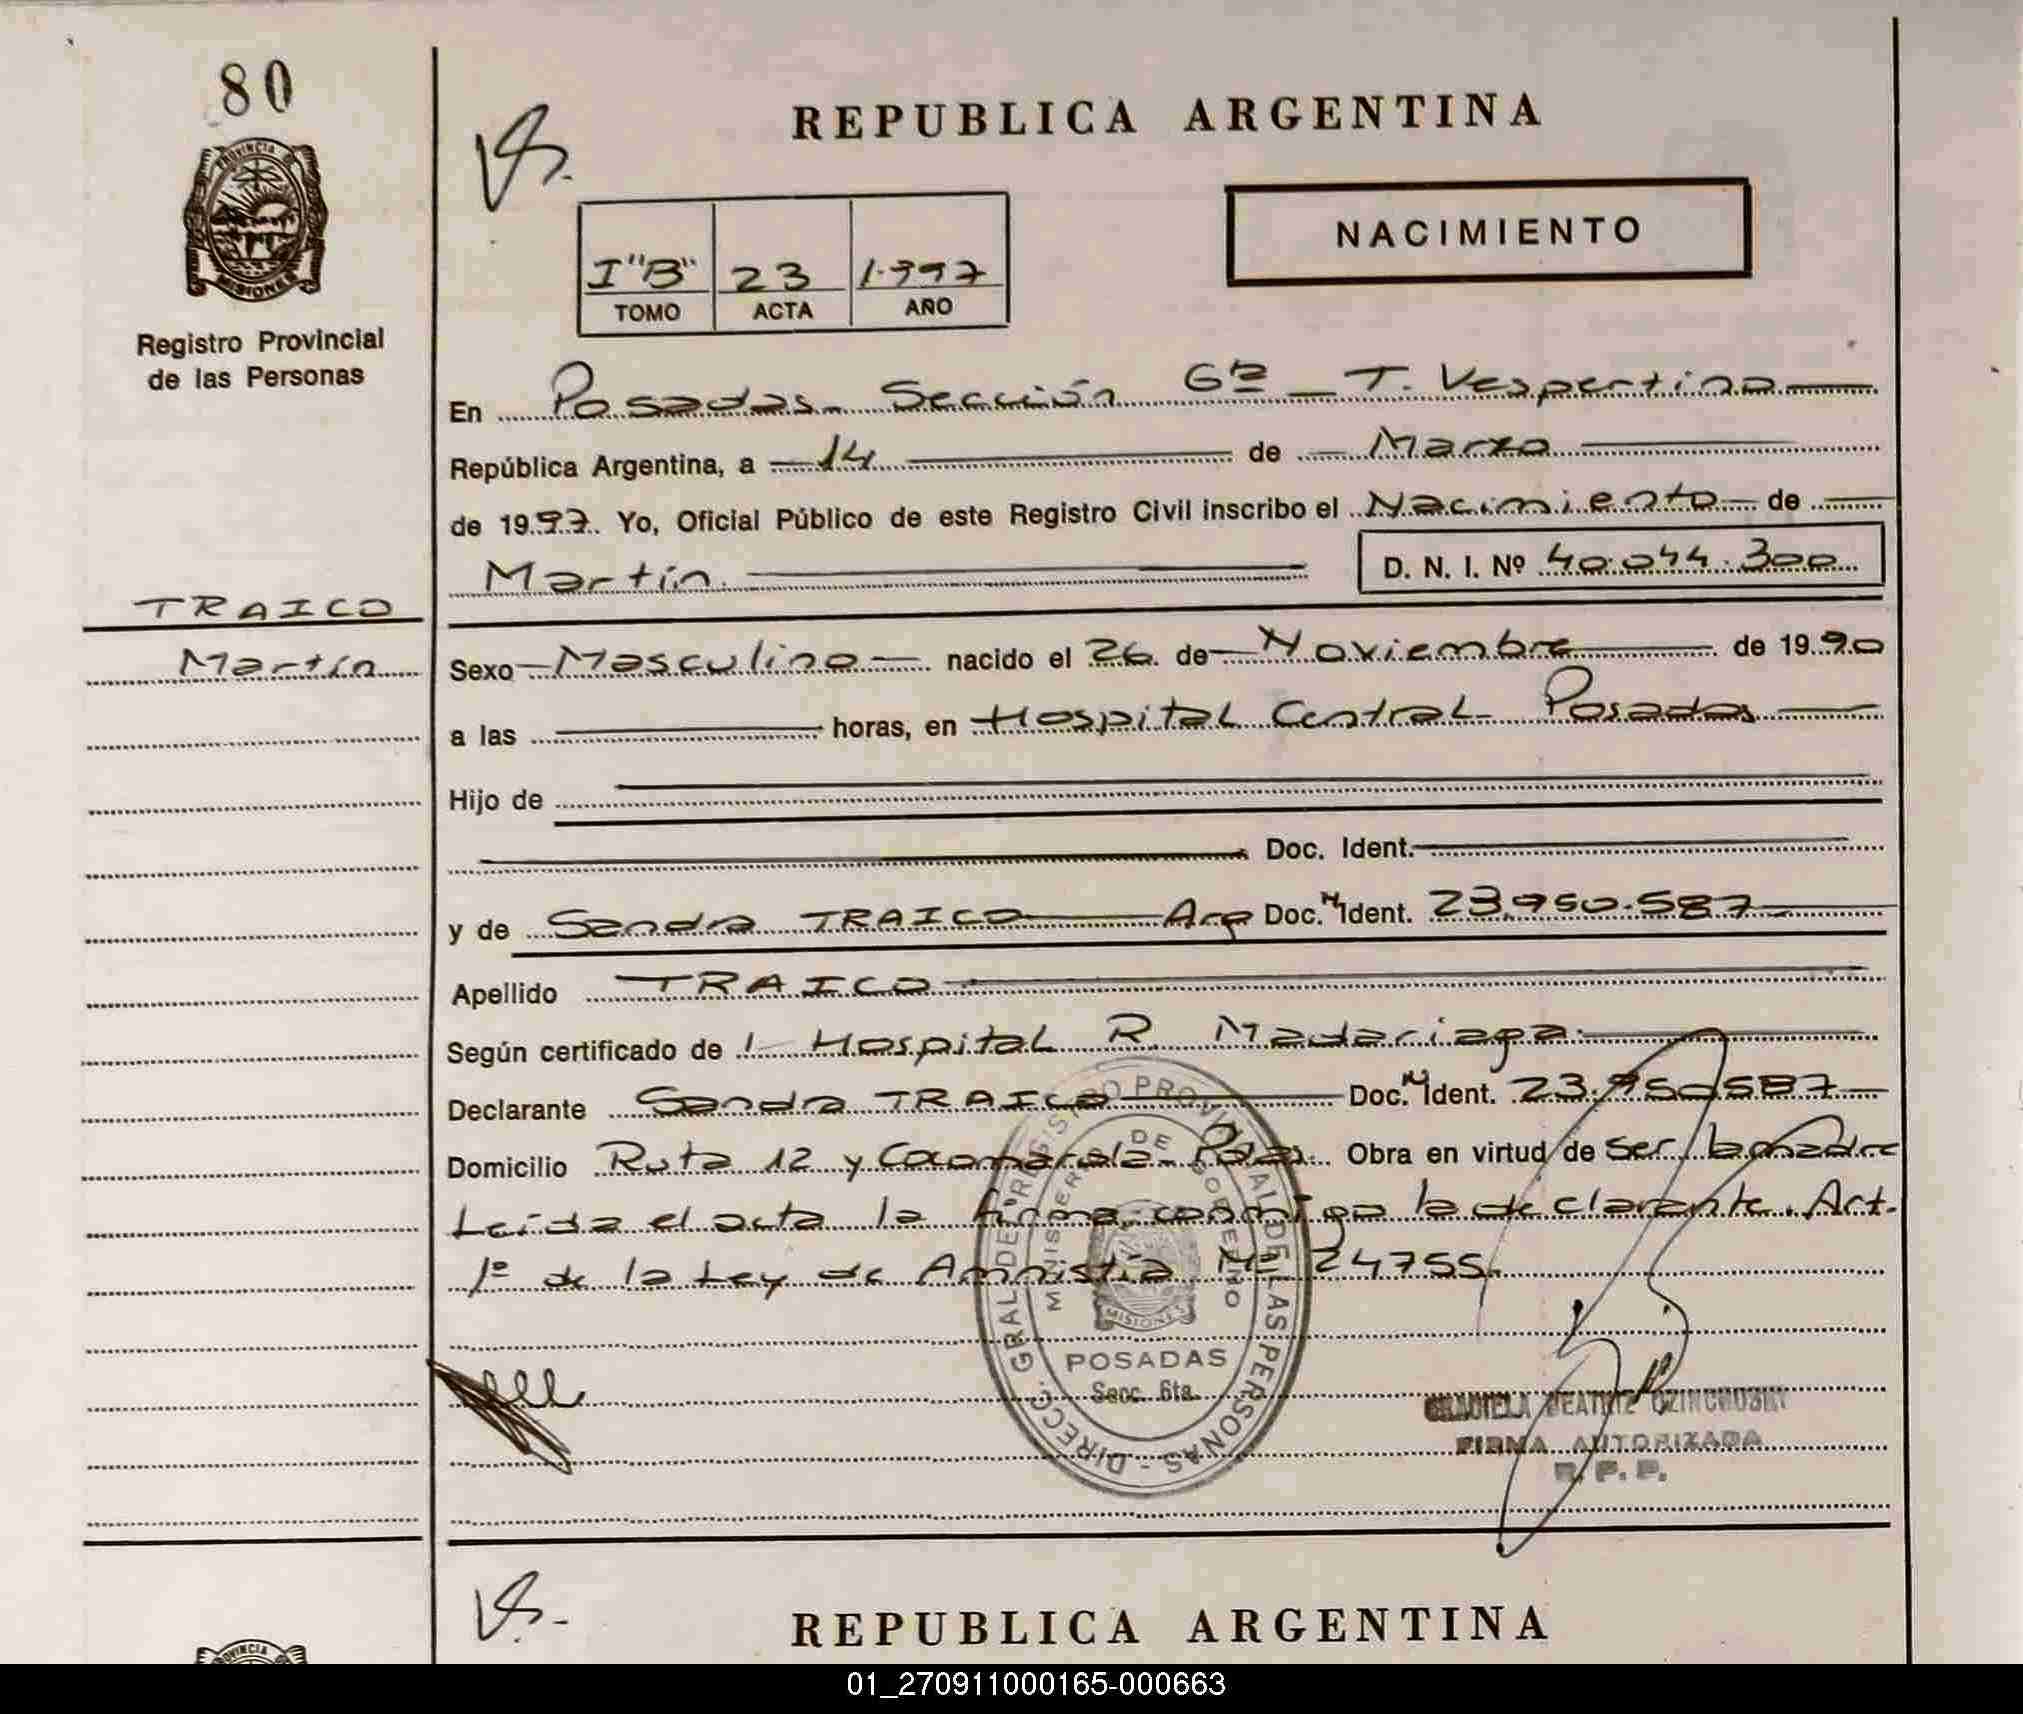 80
REPUBLICA ARGENTINA
NACIMIENTO
I "B" 23 1.997
TOMO ACTA AÑO
PROVINCIA DE
MISIONES
Registro Provincial
de las Personas
En Posadas - Sección 6ta - T. Vespertina
República Argentina, a 14 de Marzo
de 1997. Yo, Oficial Público de este Registro Civil inscribo el Nacimiento de
Martín D. N. I. Nº 40.044.300
TRAICO
Martín
Sexo Masculino nacido el 26 de Noviembre de 1990
a las horas, en Hospital Central - Posadas
Hijo de
Doc. Ident.
y de Sandra TRAICO Arg Doc. N Ident. 23.950.587
Apellido TRAICO
Según certificado de l Hospital R. Madariaga
Declarante Sandra TRAICO Doc. N Ident. 23.950.587
Domicilio Ruta 12 y Cocomarola - Pdas. Obra en virtud de ser la madre
Leída el acta la firma conmigo la declarante. Art.
1º de la Ley de Amnistía Nº 24755.
DIRECC. GRAL. DE REGISTRO PROVINCIAL DE LAS PERSONAS -
MINISTERIO DE GOBIERNO
MISIONES
POSADAS
Secc. 6ta.
GRACIELA BEATRIZ
FIRMA AUTORIZADA
R. P. P.
REPUBLICA ARGENTINA
PROVINCIA
01_270911000165-000663